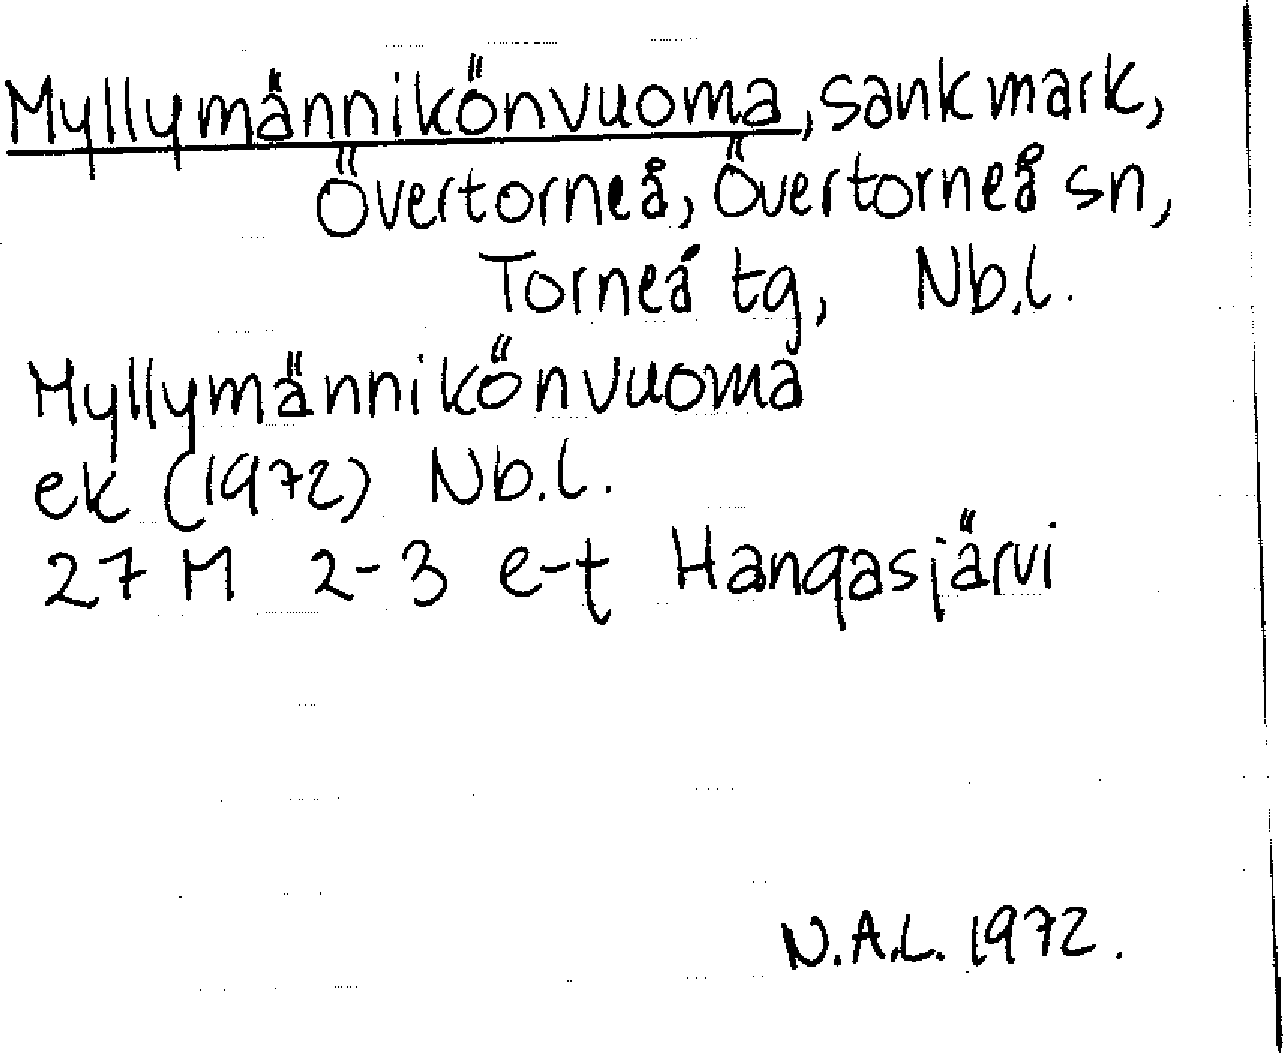 Myllymännikönvuoma, sankmark,
Övertorneå, Övertorneå sn,
Torneå tg, Nb.l.
Myllymännikönvuoma
ek (1972) Nb.l.
27 M 2-3 e-t Hangasjärvi
N.A.L. 1972.